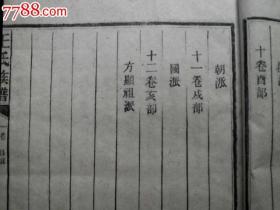 7788.com
十卷酉部
朝派
十一卷戍部
國派
十二卷亥部
方顯祖派
王氏族譜